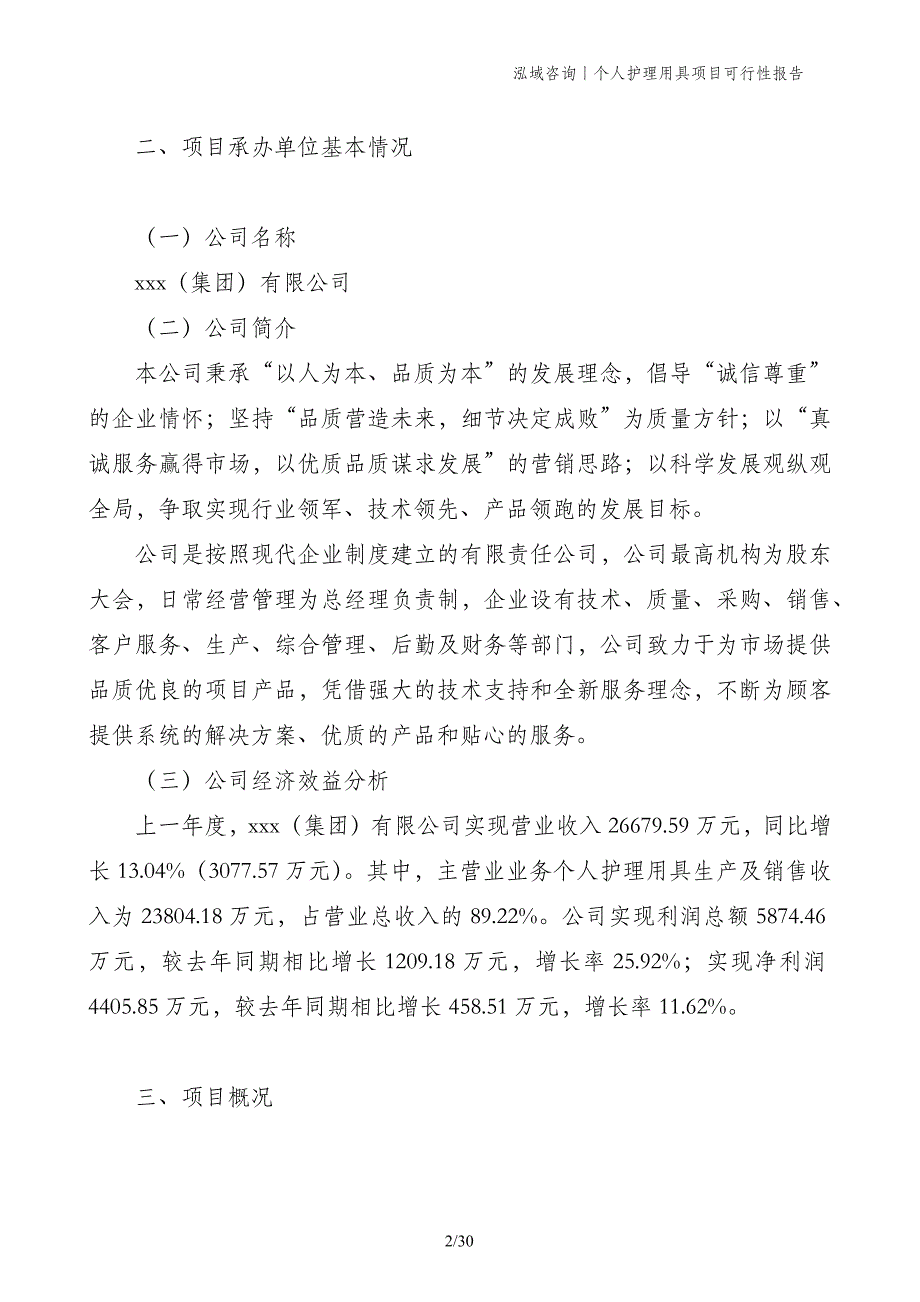 泓域咨询丨个人护理用具项目可行性报告
二、项目承办单位基本情况
（一）公司名称
xxx（集团）有限公司
（二）公司简介
本公司秉承“以人为本、品质为本”的发展理念，倡导“诚信尊重”
的企业情怀；坚持“品质营造未来，细节决定成败”为质量方针；以“真
诚服务赢得市场，以优质品质谋求发展”的营销思路；以科学发展观纵观
全局，争取实现行业领军、技术领先、产品领跑的发展目标。
公司是按照现代企业制度建立的有限责任公司，公司最高机构为股东
大会，日常经营管理为总经理负责制，企业设有技术、质量、采购、销售、
客户服务、生产、综合管理、后勤及财务等部门，公司致力于为市场提供
品质优良的项目产品，凭借强大的技术支持和全新服务理念，不断为顾客
提供系统的解决方案、优质的产品和贴心的服务。
（三）公司经济效益分析
上一年度，xxx（集团）有限公司实现营业收入 26679.59 万元，同比增
长 13.04%（3077.57 万元）。其中，主营业业务个人护理用具生产及销售收
入为 23804.18 万元，占营业总收入的 89.22%。公司实现利润总额 5874.46
万元，较去年同期相比增长 1209.18 万元，增长率 25.92%；实现净利润
4405.85 万元，较去年同期相比增长 458.51 万元，增长率 11.62%。
三、项目概况
2/30